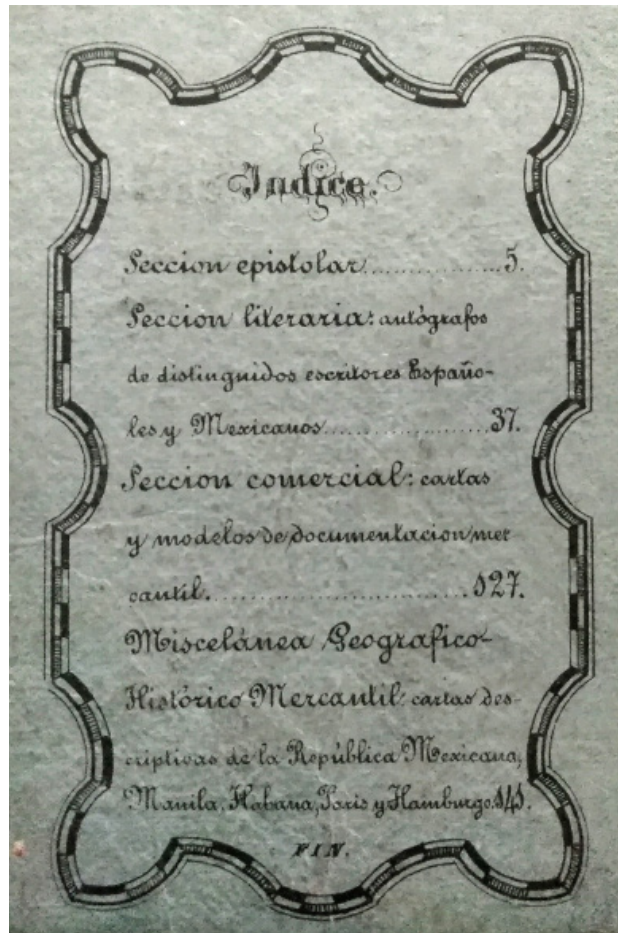 Indice.
Seccion epistolar................5.
Seccion literaria: autógrafos
de distinguidos escritores Españo-
les y Mexicanos....................37.
Seccion comercial: cartas
y modelos de documentacion mer
cantil...............................127.
Miscelánea Geografico-
Histórico Mercantil: cartas des-
criptivas de la República Mexicana,
Manila, Habana, Paris y Hamburgo.141.
FIN.